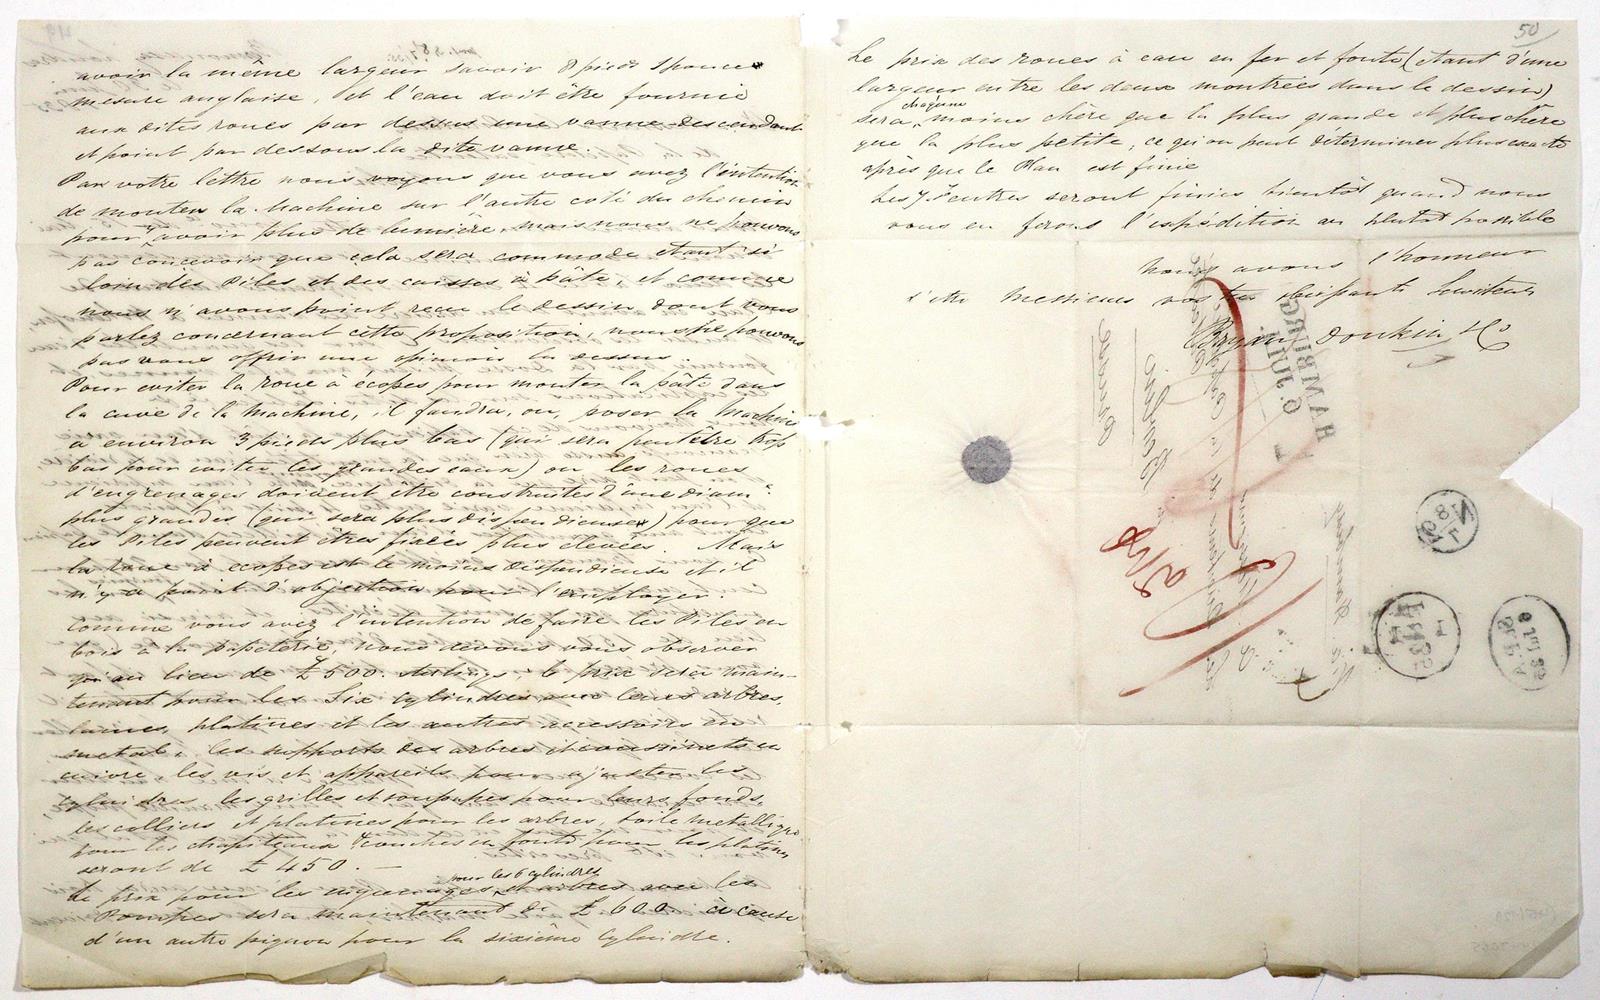 avoir la même largeur savoir 8 pieds 3 pouces
mesure anglaise, et l'eau doit être fournie
aux dites roues par dessus une vanne descendant
et point par dessous la dite vanne.
Par votre lèttre nous voyons que vous avez l'intention
de monter la Machine sur l'autre coté du chemin
pour y avoir plus de lumière, mais nous ne pouvons
pas concevoir que cela sera commode étant si
loin des Piles et des caisses à pâte, et comme
nous n'avons point reçu le dessin dont vous
parlez concernant cette proposition, nous ne pouvons
pas vous offrir une opinion la dessus.
Pour eviter la roue à écopes pour monter la pâte dans
la cuve de la Machine, il faudra, ou, poser la Machine
à environ 3 pieds plus bas (qui sera peutêtre trop
bas pour eviter les grandes eaux) ou les roues
d'engrenages doivent être construites d'une diamre
plus grandes (qui sera plus dispendieuse) pour que
les Piles peuvent êtres fixées plus élevées. Mais
la roue à ecopes est le moins dispendieuse et il
n'y a point d'objection pour l'employer.
Comme vous avez l'intention de faire les Piles en
bois à la papetérie, nous devons vous observer
qu'au lieu de £500. sterlings le prix sera main-
tenant pour les Six cylindres avec leurs arbres,
lames, platines et les autres accessoirs en
metal, les supports des arbres et coussinets en
cuivre, les vis et appareils pour ajuster les
cylindres les grilles et soupapes pour leurs fonds,
les colliers et platines pour les arbres, toile metallique
pour les chapiteaux & couches en fonte pour les platines
seront de £450. —
pour les 6 cylindres
Le prix pour les engrenages et arbres avec les
Pompes sera maintenant de £.600 à cause
d'un autre pignon pour la sixième Cylindre.
50
Le prix des roues à eau en fer et fonte (etant d'une
largeur entre les deux montrées dans le dessin)
chaqune
sera moins chère que la plus grande et plus chère
que la plus petite, ce qu'on peut déterminer plus exacte
après que le Plan est finie
Les seront finies bientôt quand nous
vous en ferons l'expédition au plutot possible
Nous avons l'honneur
d'etre Messieurs vos tres obeissants Serviteurs
Bryan Donkin & Co
HAMBURG
6. JUL.